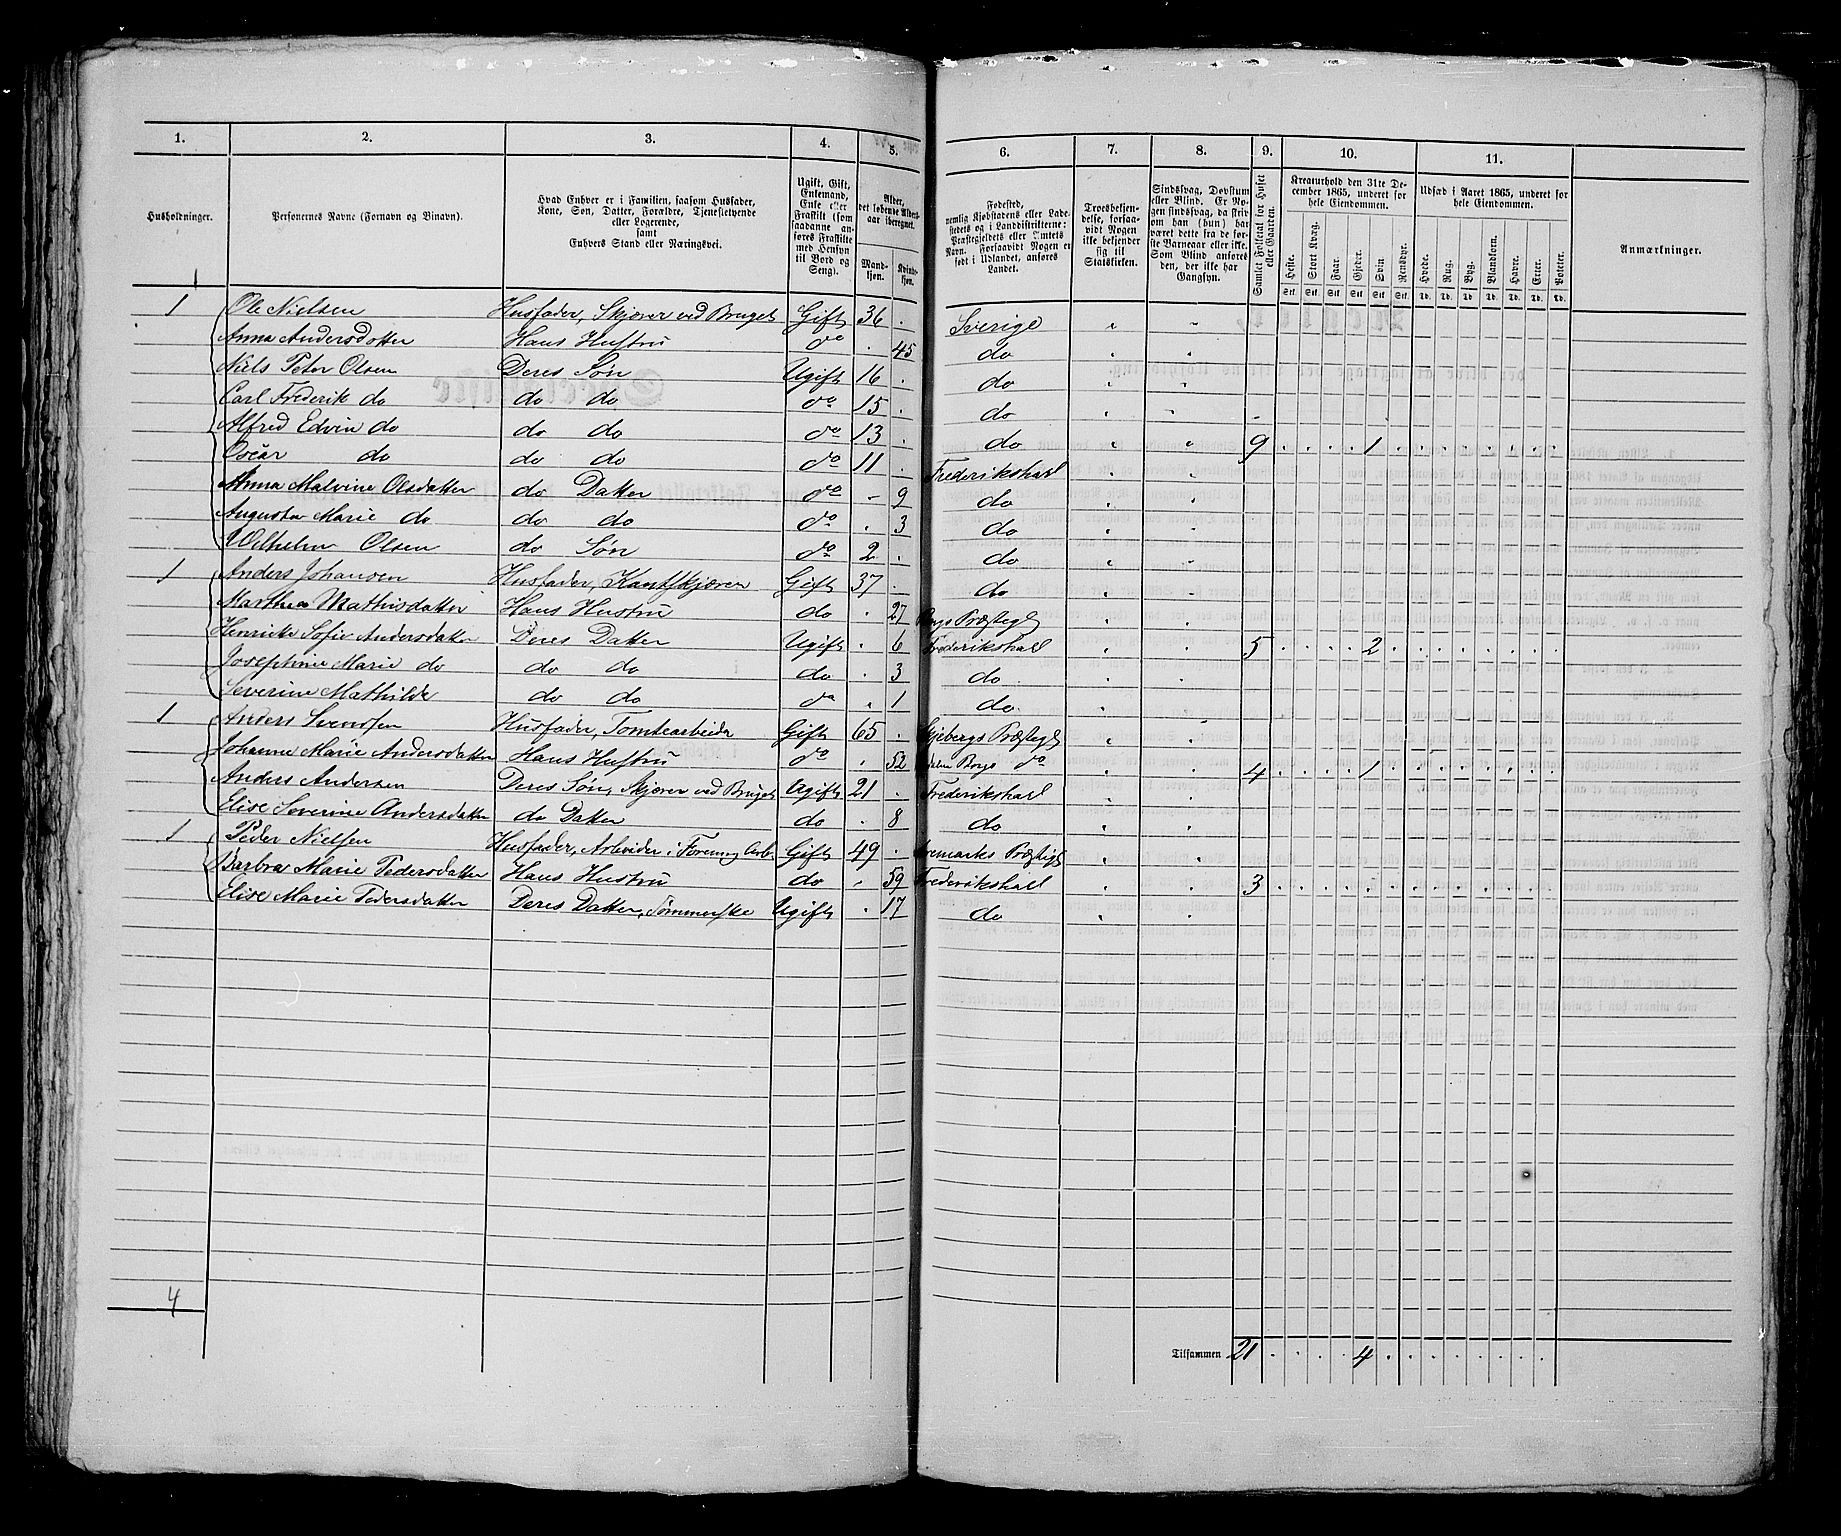 1. 2. 3. 4. 5. 6. 7. 8. 9. 10. 11.
Husholdninger.
Personernes Navne (Fornavn og Binavn).
Hvad Enhver er i Familien, saasom Husfader,
Kone, Søn, Datter, Forældre, Tjenestetyende
eller Logerende,
samt
Enhvers Stand eller Næringsvei.
Ugift, Gift,
Enkemand,
Enke eller
Fraskilt (som
saadanne an-
føres Fraskilte
med Hensyn
til Bord og
Seng).
Alder,
det løbende Alders-
aar iberegnet.
Mand-
kjøn.
Kvinde-
kjøn.
Fødested,
nemlig Kjøbstadens eller Lade-
stedets og i Landdistrikterne:
Præstegjeldets eller Amtets
Navn. Forsaavidt Nogen er
født i Udlandet, anføres
Landet.
Troesbekjen-
delse, forsaa-
vidt Nogen
ikke bekjender
sig til
Statskirken.
Sindssvag, Døvstum
eller Blind. Er No-
gen sindssvag, da skriv
om han (hun) har
været dette fra de før-
ste Barneaar eller ikke.
Som Blind anføres
den, der ikke har
Gangsyn.
Samlet Folketal for Huset
eller Gaarden.
Kreaturhold den 31te De-
cember 1865, underet for
hele Eiendommen.
Heste. Stort Kvæg. Faar. Gjeder. Svin. Rensdyr.
Stk. Stk. Stk. Stk. Stk. Stk.
Udsæd i Aaret 1865, underet for
hele Eiendommen.
Hvede. Rug. Byg. Blandkorn. Havre. Erter. Poteter.
Td. Td. Td. Td. Td. Td. Td.
Anmærkninger.
1 Ole Nielsen Husfader, Skjærer ved Bruget Gift 36 Sverige
Anna Andersdatter Hans Hustru do 45 do
Niels Peter Olsen Deres Søn Ugift 16 do
Carl Frederik do do do do 15 do
Alfred Edvin do do do do 13 do 9 1
Oscar do do do do 11 Frederikshald
Anna Malvine Olsdatter do Datter do 9 do
Augusta Marie do do do do 3 do
Wilhelm Olsen do Søn do 2 do
1 Anders Johansen Husfader, Kantskjærer Gift 37 do
Marthea Mathisdatter Hans Hustru do 27 Borgs Præstegd
Henricke Sofie Andersdatter Deres Datter Ugift 6 Frederikshald 5 2
Josephine Marie do do do do 3 do
Severine Mathilde do do do 1 do
1 Anders Svendsen Husfader, Tomtearbeider Gift 65 Skjebergs Præstegd
Johanne Marie Andersdatter Hans Hustru do 52 Borgs do 4 1
Anders Andersen Deres Søn, Skjærer ved Bruget Ugift 21 Frederikshald
Elise Severine Andersdatter do Datter do 8 do
1 Peder Nielsen Husfader, Arbeider i Gift 49 Aremarks Præstegd
Barbra Marie Pedersdatter Hans Hustru do 59 Frederikshald 3
Elise Marie Pedersdatter Deres Datter, Sømmerske Ugift 17 do
4
Tilsammen 21 4